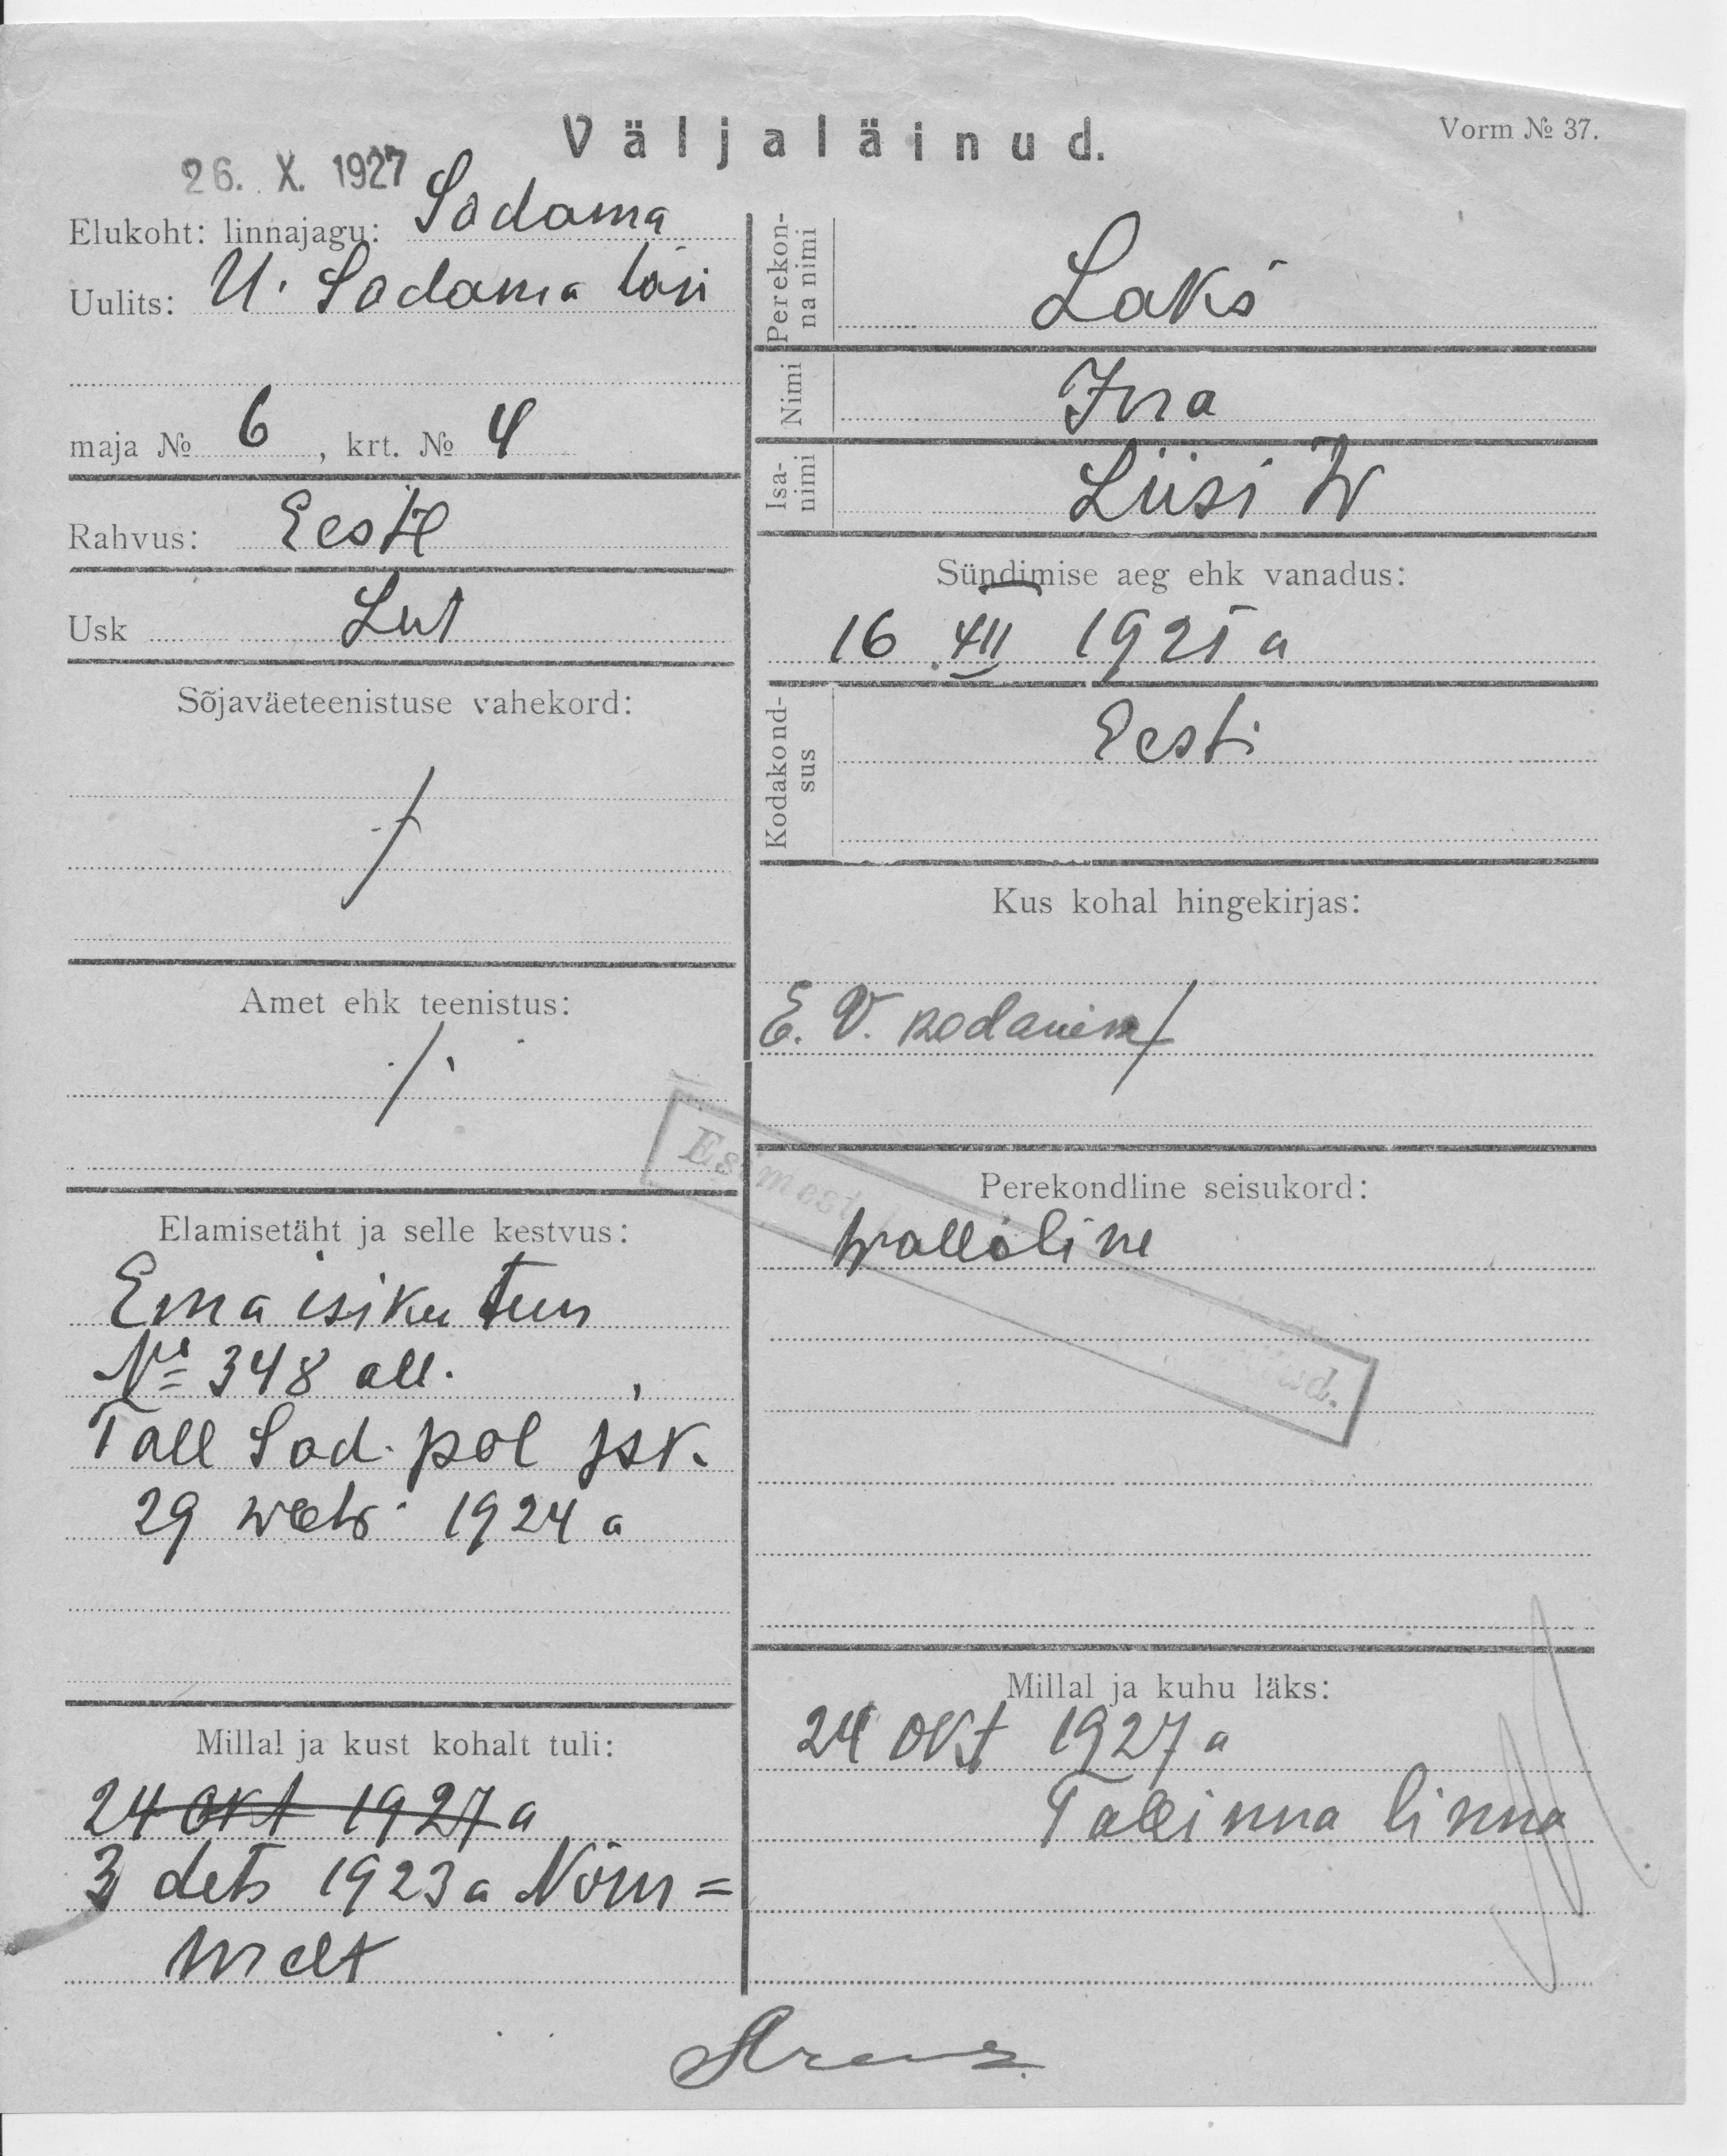 Väljaläinud.
Vorm № 37.
26. X. 1927
Elukoht: linnajagu: Sadama
Uulits: U. Sadama tän
maja № 6, krt. № 4
Rahvus: Eesti
Usk Lut
Sõjaväeteenistuse vahekord:
Amet ehk teenistus:
Elamisetäht ja selle kestvus:
Ema isiku tun
№ 348 all.
Tall Sad. pol jsk.
29 weebr 1924 a
Millal ja kust kohalt tuli:
24 okt 1927 a
3 dets 1923 a Nõm=
melt
Perekonna nimi Laks
Nimi Ina
Isanimi Liisi W
Sündimise aeg ehk vanadus:
16 XII 1921 a
Kodakondsus Eesti
Kus kohal hingekirjas:
E. V. kodanik
Perekondline seisukord:
wallaline
Millal ja kuhu läks:
24 okt 1927 a
Tallinna linna